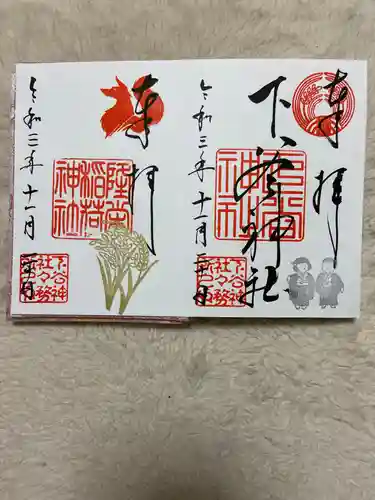 奉拝
下谷神社
令和三年十一月二十日
下谷神社
下谷神社々務所
奉拝
隆栄稲荷神社
令和三年十一月二十日
下谷神社々務所